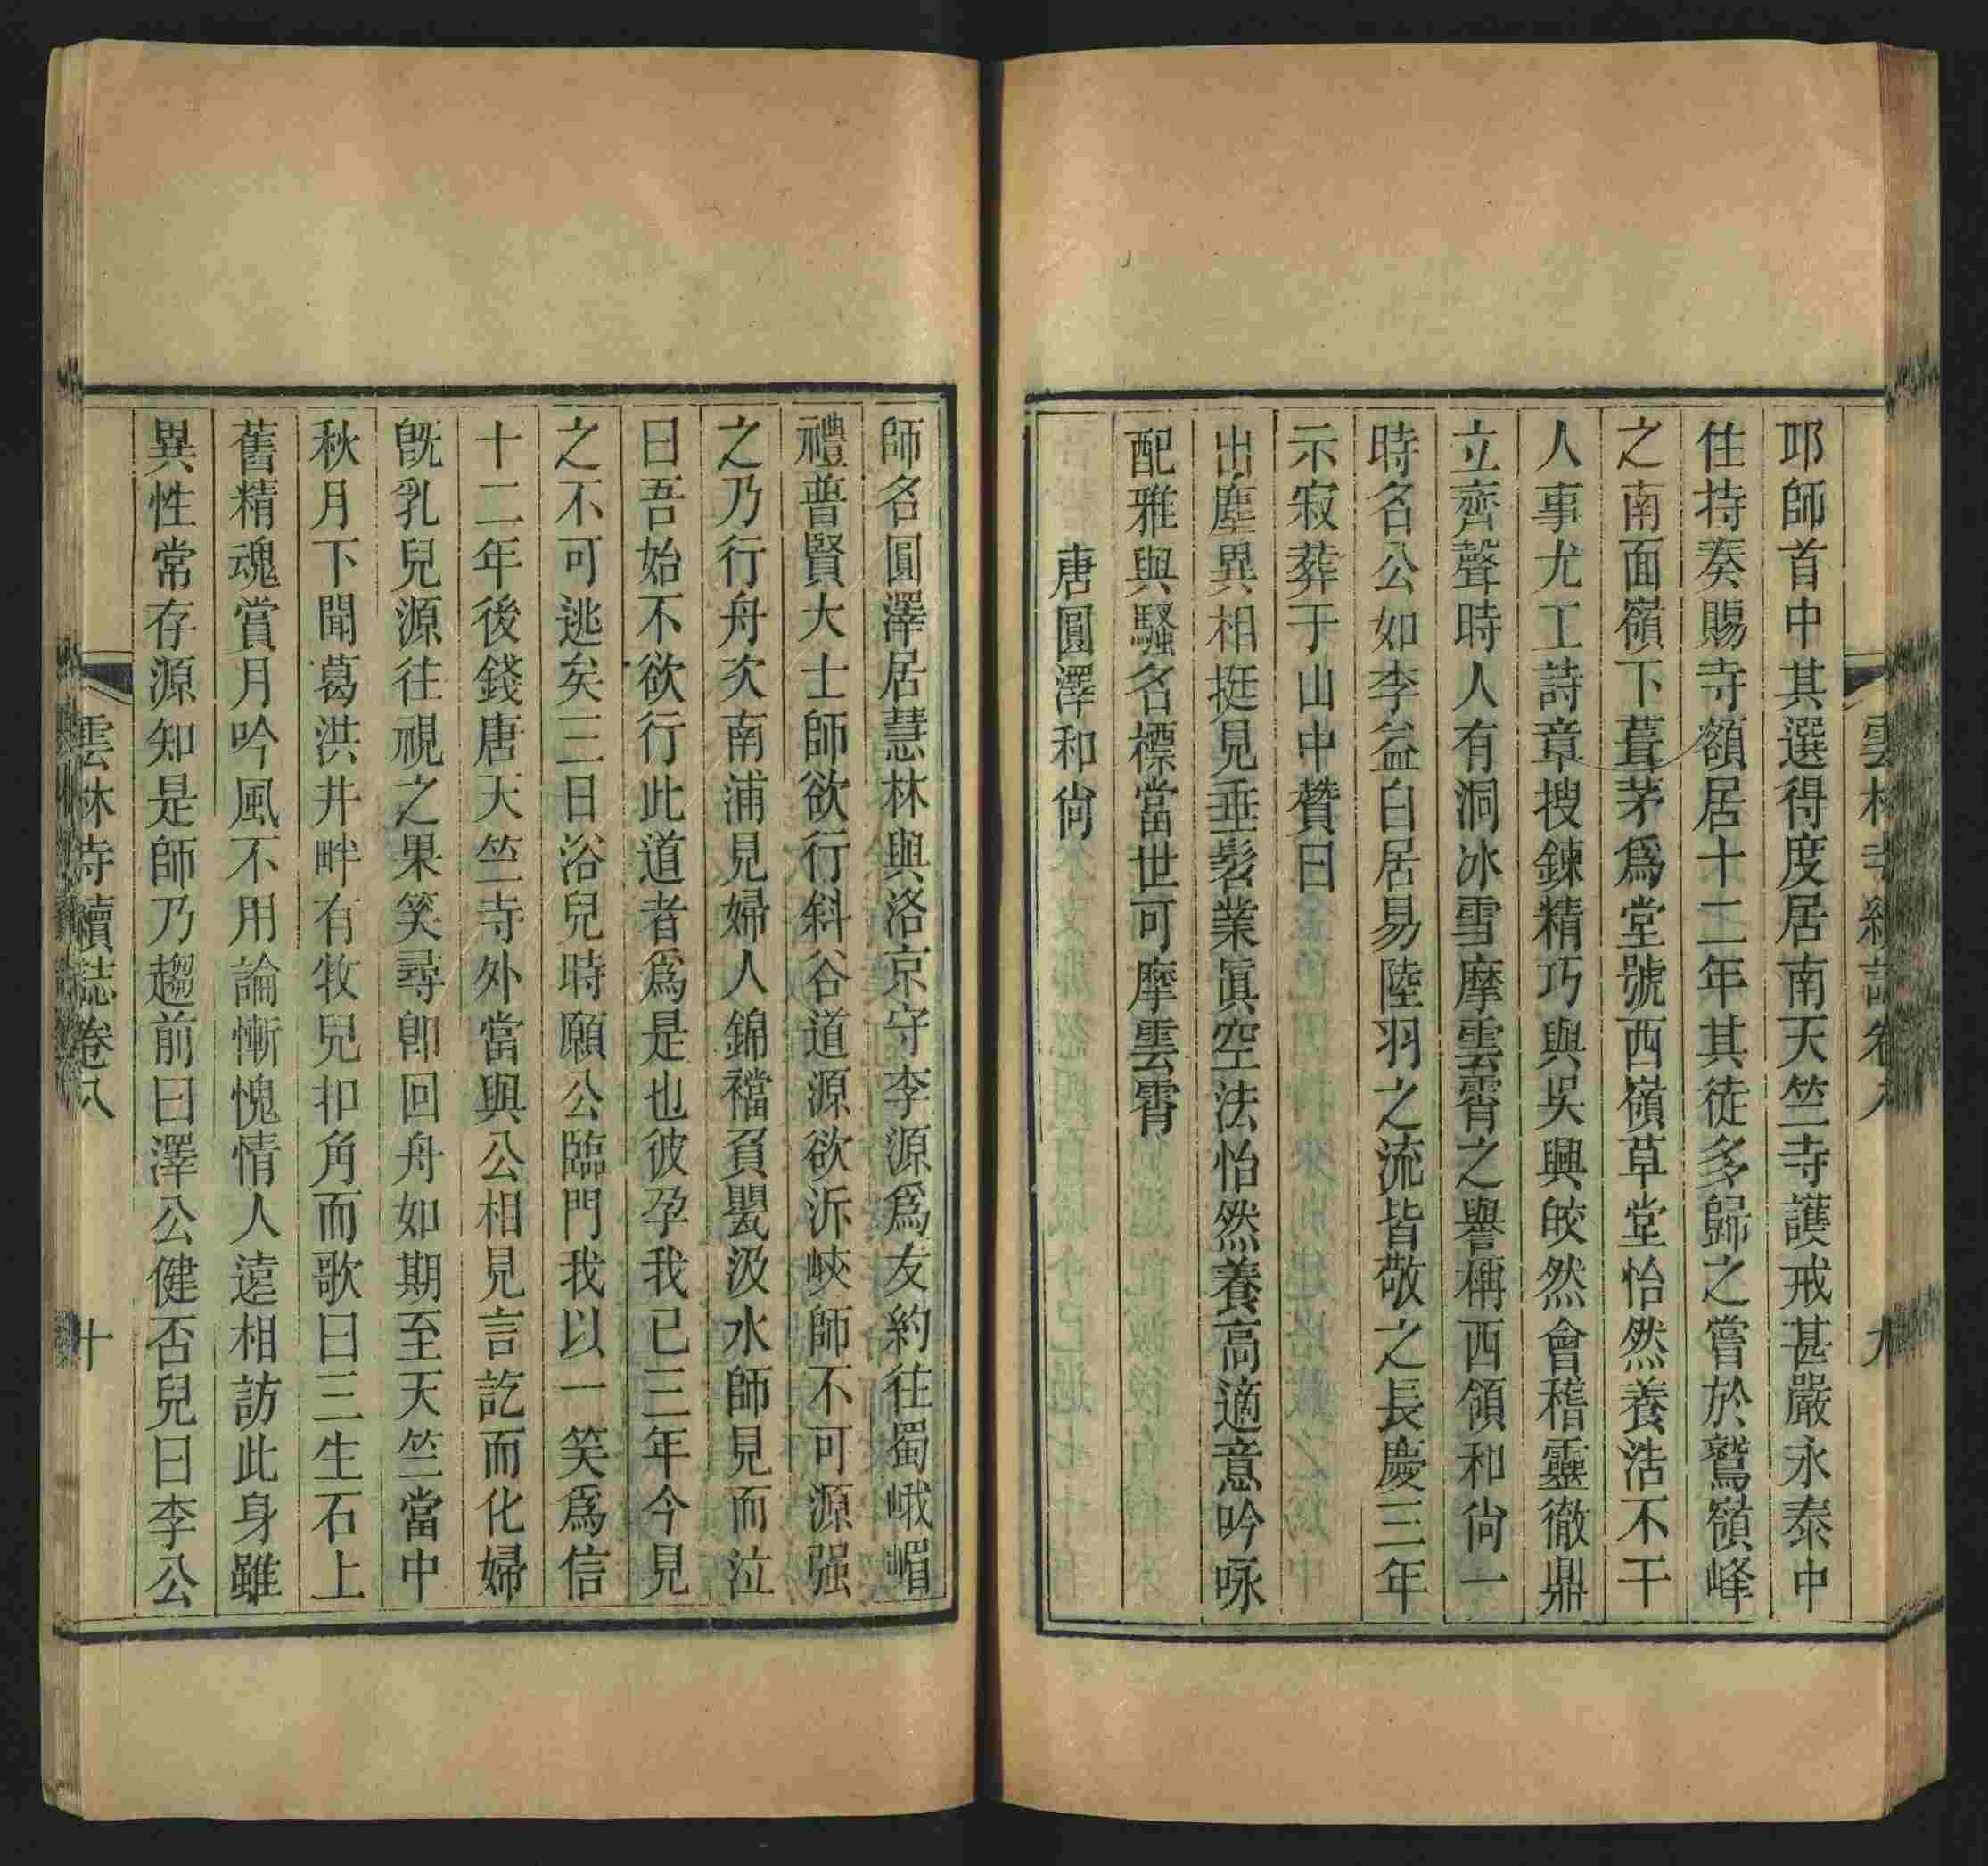 雲林寺續誌卷八 九
邛師首中其選得度居南天竺寺護戒甚嚴永泰中
住持奏賜寺額居十二年其徒多歸之嘗於鷲嶺峰
之南面嶺下葺茅爲堂號西嶺草堂怡然養浩不干
人事尤工詩章搜鍊精巧與吳興皎然會稽靈徹鼎
立齊聲時人有洞冰雪摩雲霄之譽稱西領和尙一
時名公如李益白居易陸羽之流皆敬之長慶三年
示寂葬于山中贊曰
出塵異相挺見垂髫業眞空法怡然養高適意吟咏
配雅與騷名標當世可摩雲霄
唐圓澤和尙
師名圓澤居慧林與洛京守李源爲友約往蜀峨嵋
禮普賢大士師欲行斜谷道源欲泝峽師不可源强
之乃行舟次南浦見婦人錦襠負甖汲水師見而泣
曰吾始不欲行此道者爲是也彼孕我已三年今見
之不可逃矣三日浴兒時願公臨門我以一笑爲信
十二年後錢唐天竺寺外當與公相見言訖而化婦
旣乳兒源往視之果笑尋卽回舟如期至天竺當中
秋月下聞葛洪井畔有牧兒扣角而歌曰三生石上
舊精魂賞月吟風不用論慚愧情人遠相訪此身雖
異性常存源知是師乃趨前曰澤公健否兒曰李公
雲林寺續誌卷八 十